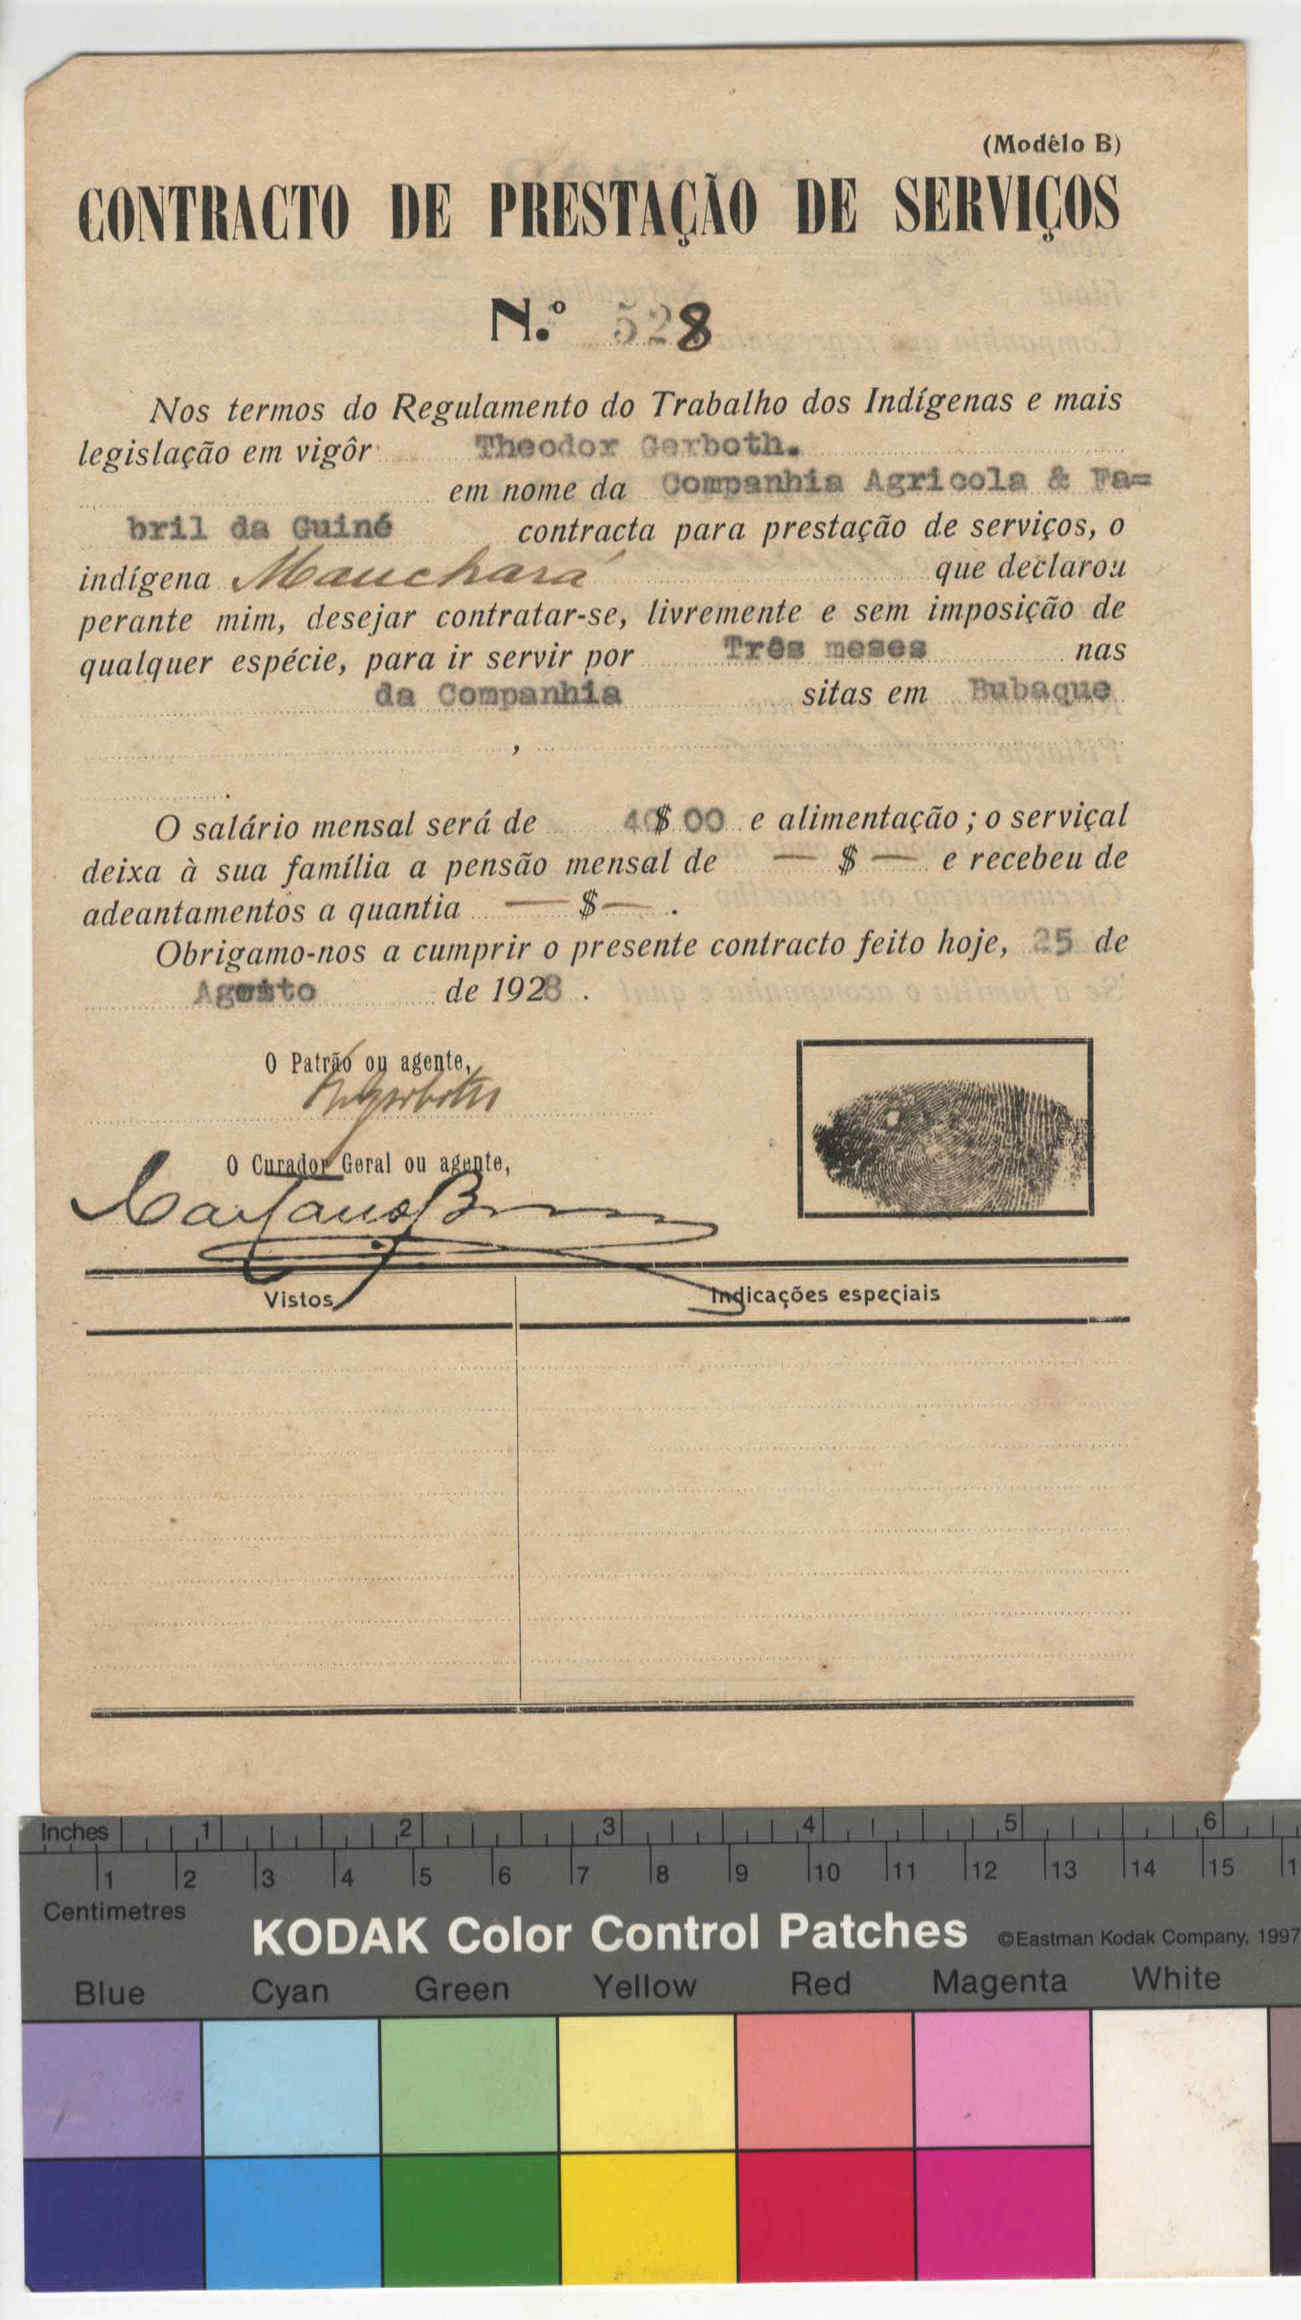 (Modêlo B)
CONTRACTO DE PRESTAÇÃO DE SERVIÇOS
N.º 528
Nos termos do Regulamento do Trabalho dos Indígenas e mais
legislação em vigôr Theodor Gerboth.
em nome da Companhia Agricola & Fa=
bril da Guiné contracta para prestação de serviços, o
indígena Mauchará que declarou
perante mim, desejar contratar-se, livremente e sem imposição de
qualquer espécie, para ir servir por Três meses nas
da Companhia sitas em Bubaque
,
.
O salário mensal será de 40$00 e alimentação; o serviçal
deixa à sua família a pensão mensal de — $ — e recebeu de
adeantamentos a quantia — $ — .
Obrigamo-nos a cumprir o presente contracto feito hoje, 25 de
Agosto de 1928 .
O Patrão ou agente,
O Curador Geral ou agente,
Vistos
Indicações especiais
Inches 1 2 3 4 5 6
1 2 3 4 5 6 7 8 9 10 11 12 13 14 15
Centimetres
KODAK Color Control Patches ©Eastman Kodak Company, 1997
Blue Cyan Green Yellow Red Magenta White